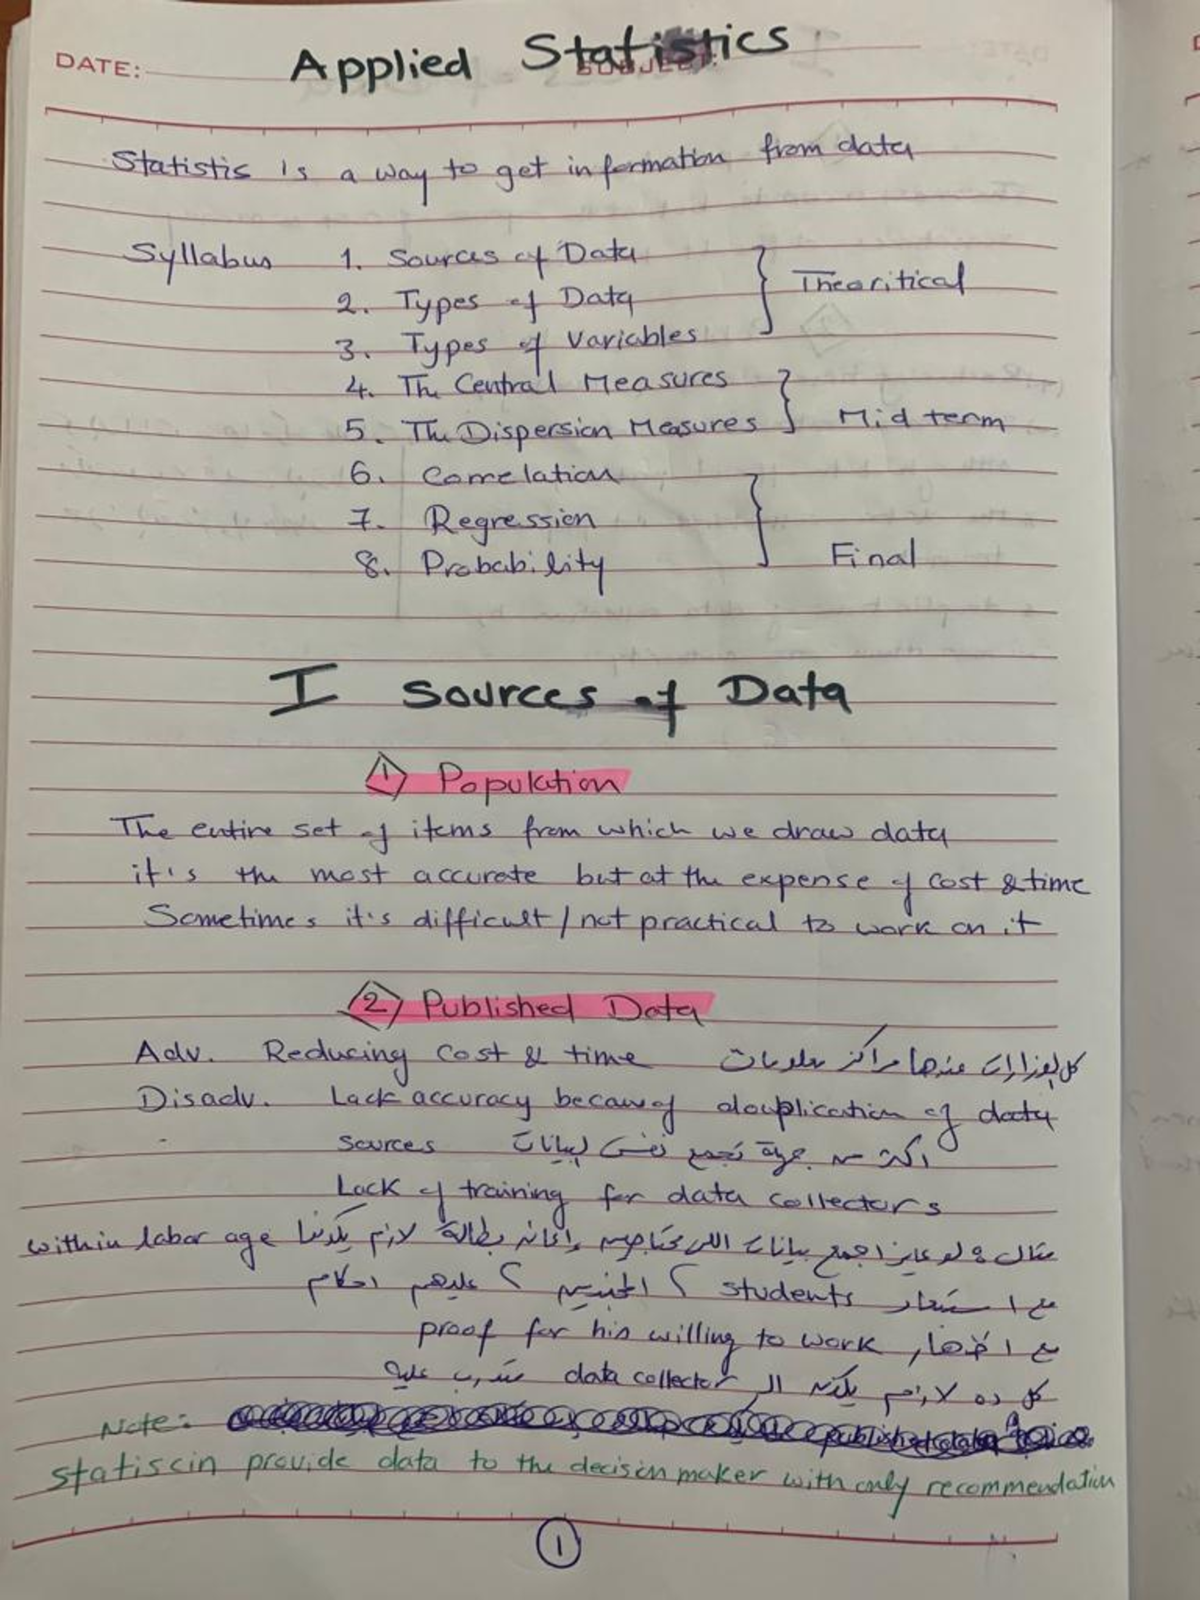 DATE:
SUBJECT:
Applied Statistics
Statistis is a way to get information from data
Syllabus 1. Sources of Data
2. Types of Data
Theoritical
3. Types of Variables
4. The Central Measures
5. The Dispersion Measures
Mid term
6. Correlation
7. Regression
8. Probability
Final
I Sources of Data
1 Population
The entire set of items from which we draw data
it's the most accurate but at the expense of cost & time
Sometimes it's difficult / not practical to work on it
2 Published Data
Adv. Reducing cost & time كل الوزارات عندها مراكز معلومات
Disadv. Lack accuracy because of douplication of data
sources اكتر من جهة تجمع نفس البيانات
Lack of training for data collectors
مثال لو عايز اجمع بيانات اللى محتاجين إعانة بطالة لازم يكونوا within labor age
مع استبعاد students ؟ المجندين ؟ عليهم احكام
مع اظهار proof for his willing to work
كل ده لازم يكون ال data collector متدرب عليه
Note: published data
statiscin provide data to the decision maker with only recommendation
1